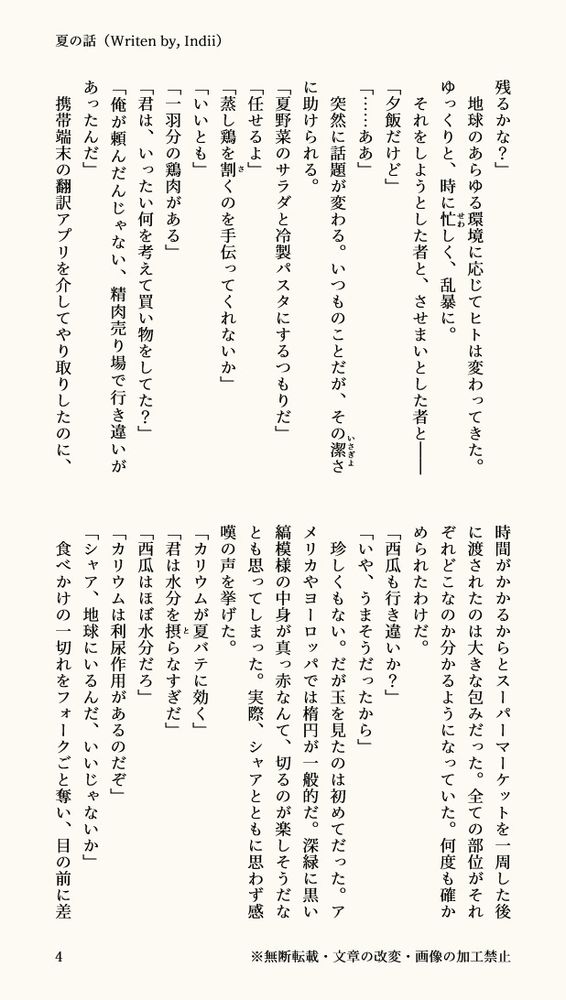 夏の話（Writen by, Indii）
残るかな？」
　地球のあらゆる環境に応じてヒトは変わってきた。
ゆっくりと、時に忙しく、乱暴に。
　それをしようとした者と、させまいとした者と――
「夕飯だけど」
「……ああ」
　突然に話題が変わる。いつものことだが、その潔さ
に助けられる。
「夏野菜のサラダと冷製パスタにするつもりだ」
「任せるよ」
「蒸し鶏を割くのを手伝ってくれないか」
「いいとも」
「一羽分の鶏肉がある」
「君は、いったい何を考えて買い物をしてた？」
「俺が頼んだんじゃない、精肉売り場で行き違いが
あったんだ」
　携帯端末の翻訳アプリを介してやり取りしたのに、
時間がかかるからとスーパーマーケットを一周した後
に渡されたのは大きな包みだった。全ての部位がそれ
ぞれどこなのか分かるようになっていた。何度も確か
められたわけだ。
「西瓜も行き違いか？」
「いや、うまそうだったから」
　珍しくもない。だが玉を見たのは初めてだった。ア
メリカやヨーロッパでは楕円が一般的だ。深緑に黒い
縞模様の中身が真っ赤なんて、切るのが楽しそうだな
とも思ってしまった。実際、シャアとともに思わず感
嘆の声を挙げた。
「カリウムが夏バテに効く」
「君は水分を摂らなすぎだ」
「西瓜はほぼ水分だろ」
「カリウムは利尿作用があるのだぞ」
「シャア、地球にいるんだ、いいじゃないか」
　食べかけの一切れをフォークごと奪い、目の前に差
4
※無断転載・文章の改変・画像の加工禁止